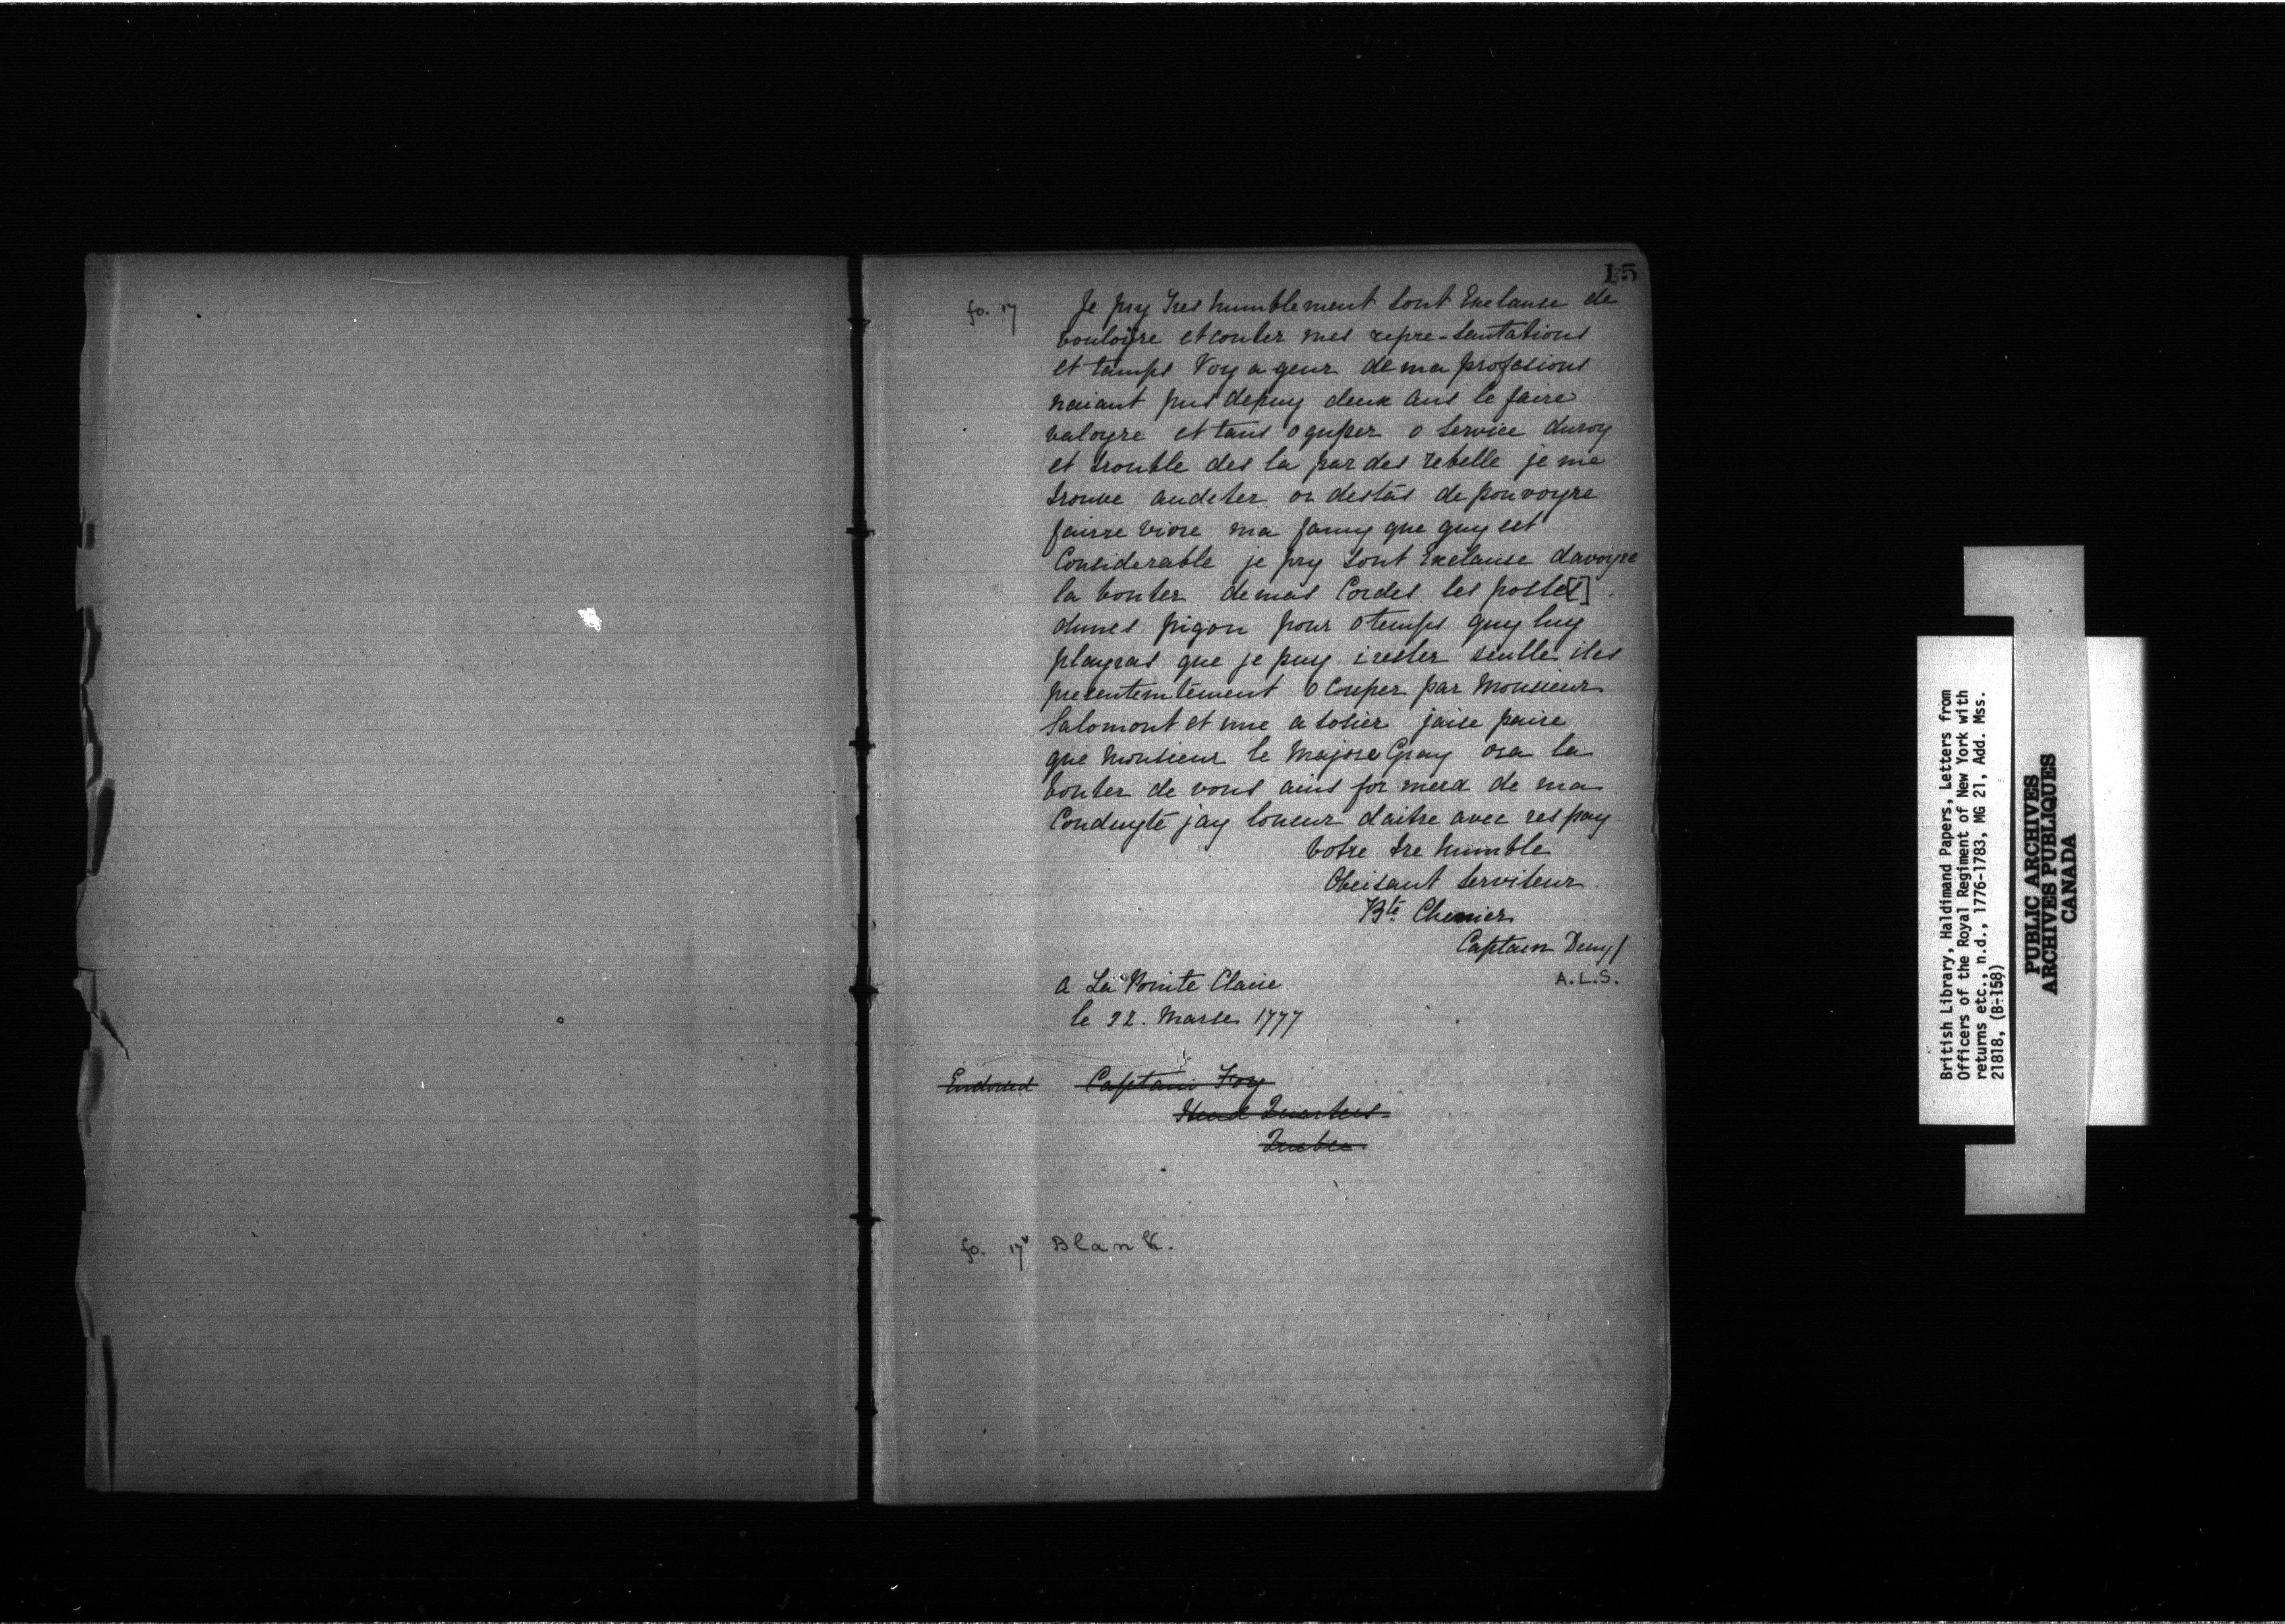 15
fo. 17 Je pry Tres humblement sont Exelanse de
vouloyre et couter mes repre-sentations
et tamps Voy a geur de ma profesions
naiant pus depuy deux ans le faire
valoyre et tans o quper o service du roy
et trouble des la par des rebelle je me
trouve andeter or destás de pouvoyre
fairre vivre ma famy que quy est
Considerable je pry sont Exelanse davoyre
la bonter demas Cordes les poste[s]
dunes pigon pour o temps quy luy
playras que je puy i rester seulle iles
presentemtément o Couper par Monsieur
Salomont et une a sosier jaise paire
que Monsieur le Majore Gray ora la
bonter de vous ains for merd de ma
Conduyté jay loneur daitre avec res pay
votre tre humble
Obeisant serviteur
Bte Chenier
Captain Deuy/
A.L.S.
a La Pointe Claire
le 22. Marse 1777
Endorsed Captain Foy
Head Quarters
Quebec
fo. 17v Blank.
British Library, Haldimand Papers, Letters from
Officers of the Royal Regiment of New York with
returns etc., n.d., 1776-1783, MG 21, Add. Mss.
21818, (B-158)
PUBLIC ARCHIVES
ARCHIVES PUBLIQUES
CANADA